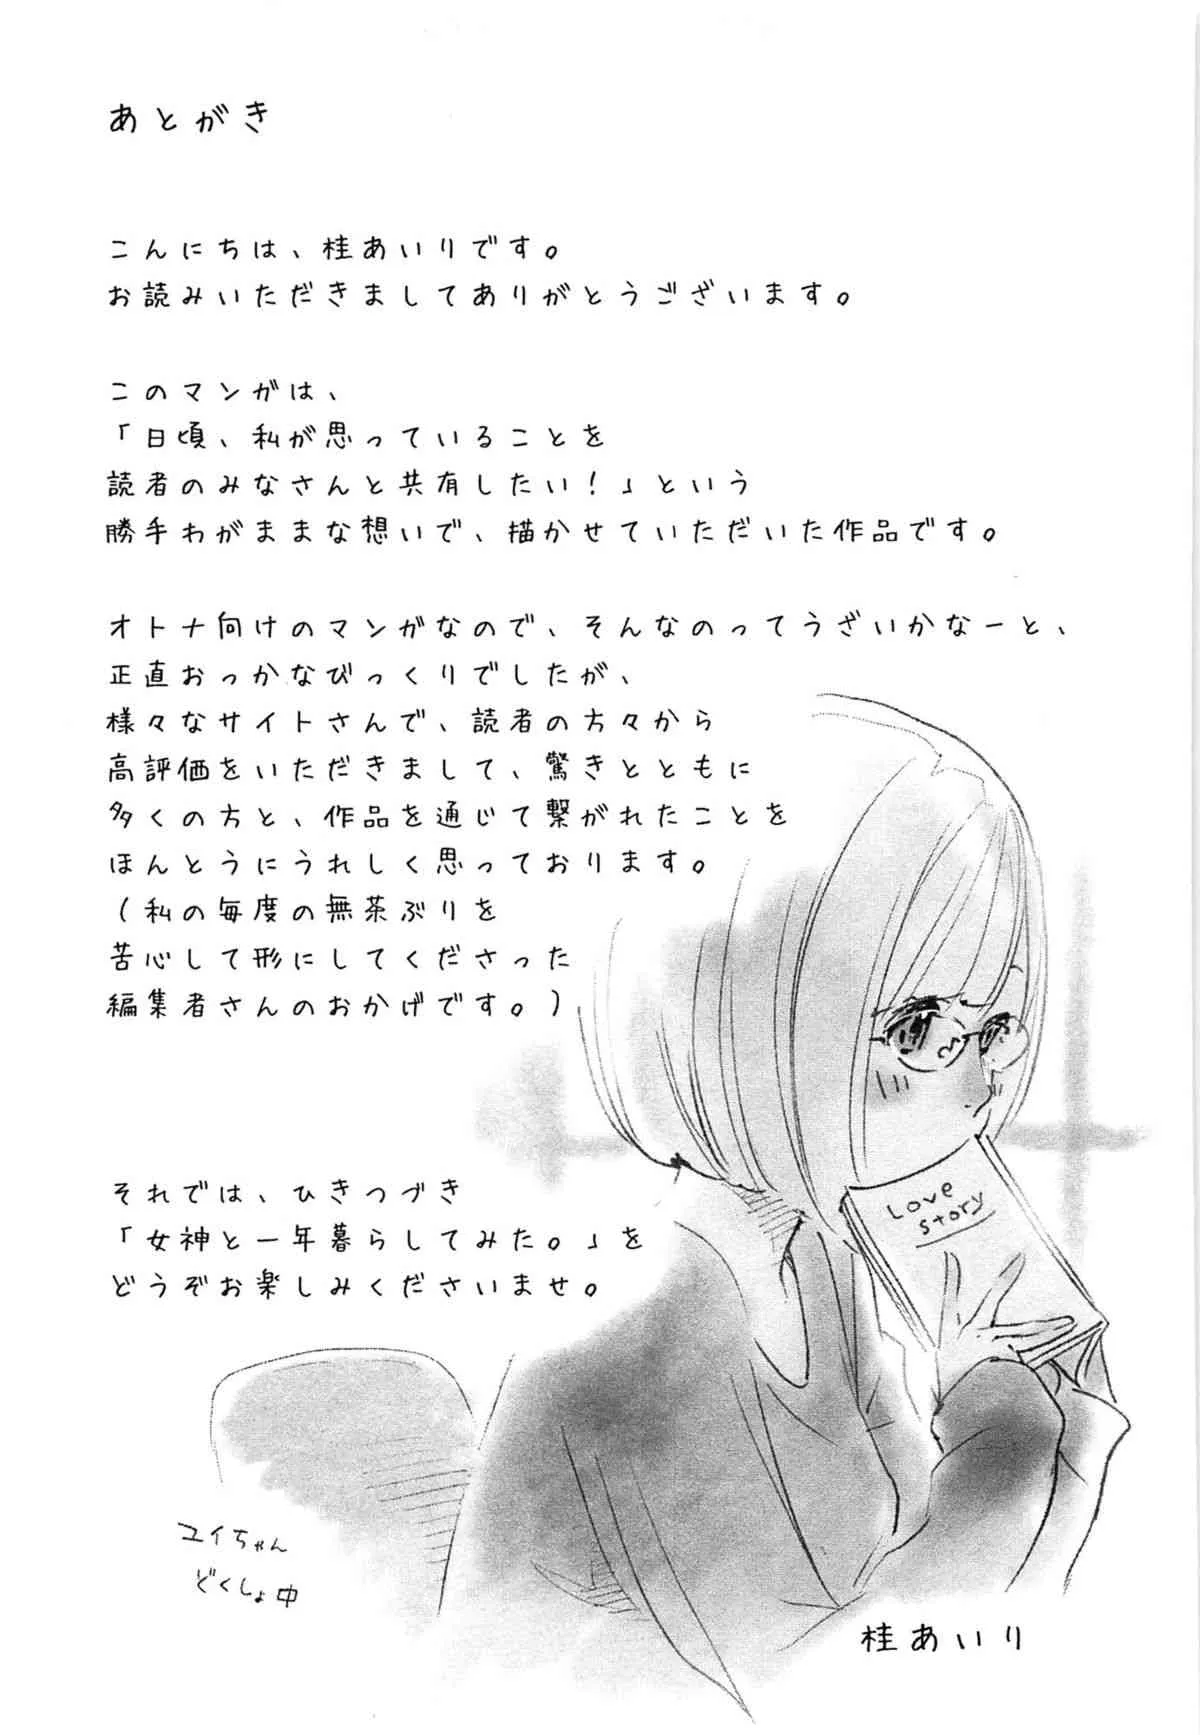 あとがき
こんにちは、桂あいりです。
お読みいただきましてありがとうございます。
このマンガは、
「日頃、私が思っていることを
読者のみなさんと共有したい！」という
勝手わがままな想いで、描かせていただいた作品です。
オトナ向けのマンガなので、そんなのってうざいかなーと、
正直おっかなびっくりでしたが、
様々なサイトさんで、読者の方々から
高評価をいただきまして、驚きとともに
多くの方と、作品を通じて繋がれたことを
ほんとうにうれしく思っております。
（私の毎度の無茶ぶりを
苦心して形にしてくださった
編集者さんのおかげです。）
Love
Story
それでは、ひきつづき
「女神と一年暮らしてみた。」を
どうぞお楽しみくださいませ。
ユイちゃん
どくしょ中
桂あいり